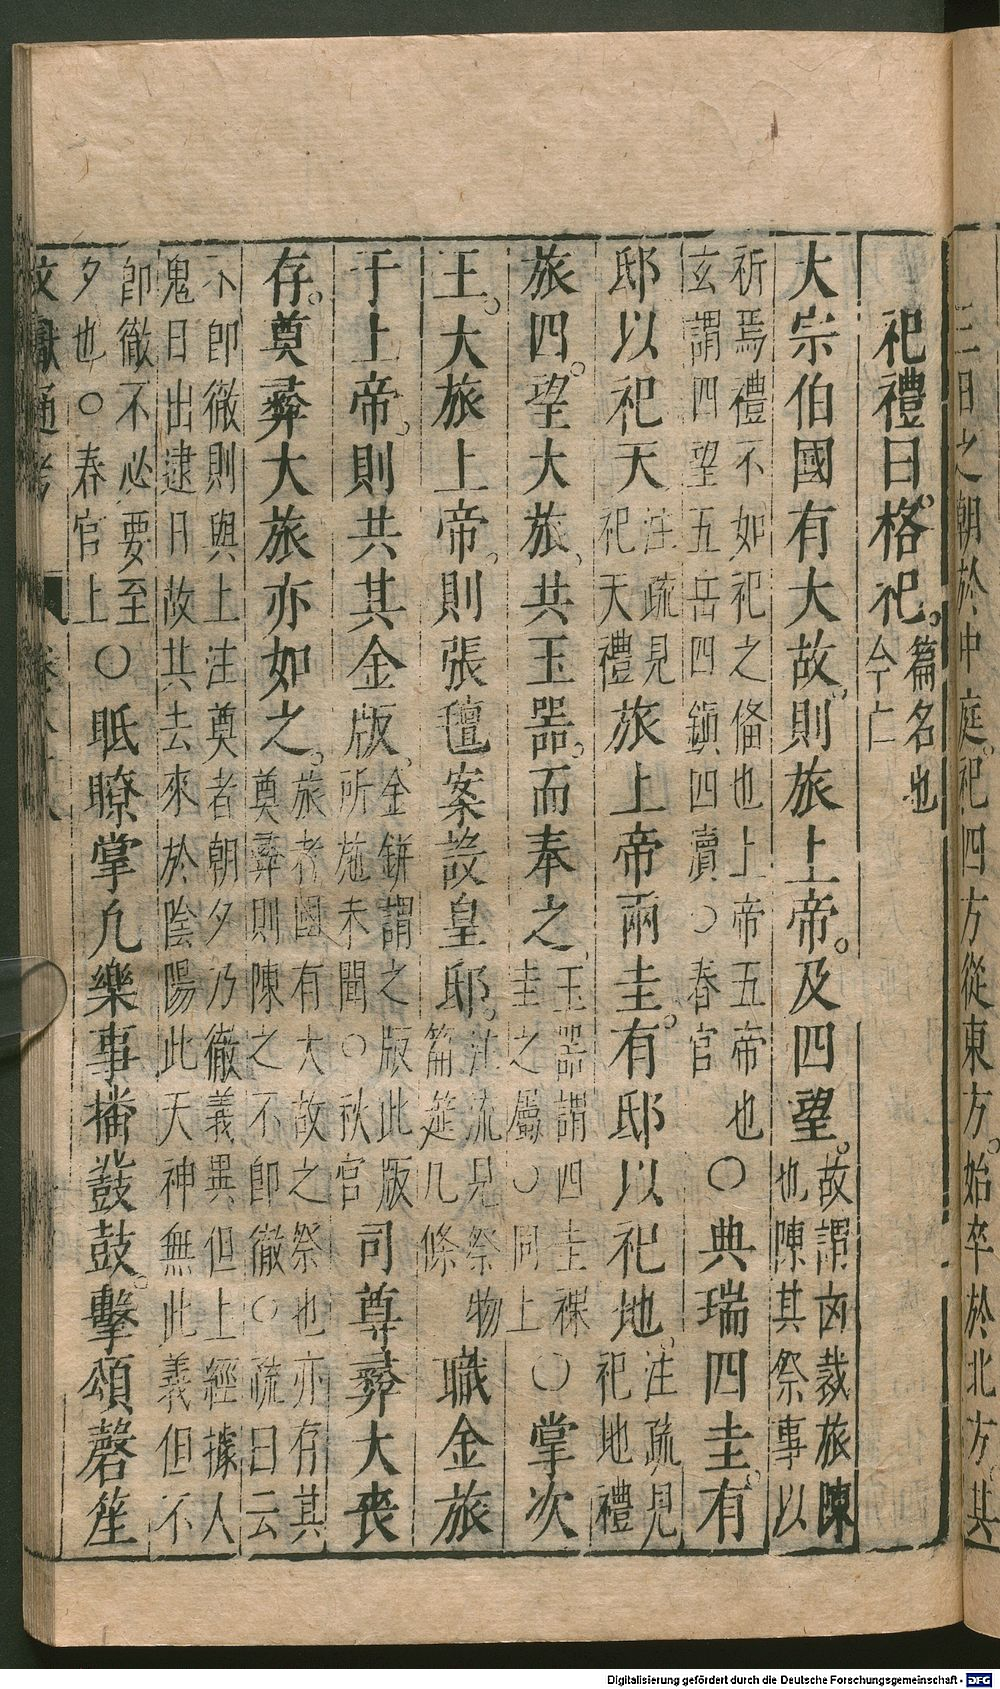 三日之朝於中庭。祀四方從東方。始卒於北方。其
祀禮曰。格祀。篇名也今亡
大宗伯國有大故。則旅上帝。及四望。故謂凶裁旅陳也陳其祭事以
祈焉禮不如祀之偹也上帝五帝也玄謂四望五岳四鎮四瀆○春官○典瑞四圭。有
邸以祀天注疏見祀天禮旅上帝兩圭。有邸以祀地。注疏見祀地禮
旅四。望大旅。共玉器。而奉之玉器謂四圭祼圭之屬○同上○掌次
王。大旅上帝。則張氊案設皇邸。注流見祭物篇筵几條職金旅
于上帝。則共其金版。金鉼謂之版此版所施未聞○秋官司尊彝大丧
存。奠彝大旅亦如之。旅者國有大故之祭也亦存其奠彝則陳之不即徹○疏曰云
不即徹則與上注奠者朝夕乃徹義異但上經據人鬼日出逮日故共去來於陰陽此天神無此義但不
即徹不必要至夕也○春官上○眡瞭掌凡樂事播鼗鼓。擊頌磬笙
文獻通考